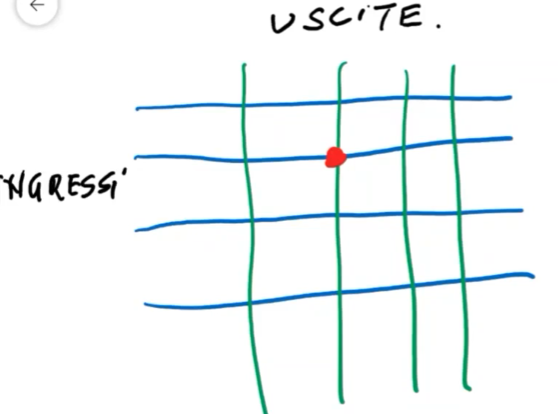 USCITE.
INGRESSI